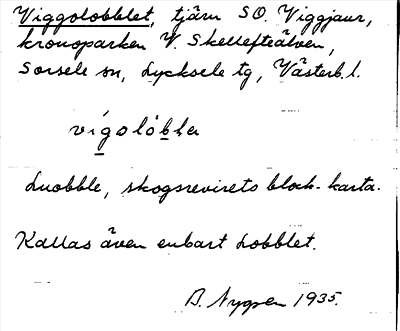 Viggolobblet, tjärn SO. Viggjaur,
kronoparken V. Skellefteälven,
Sorsele sn, Lycksele tg, Västerb. l.
vígolòbla
Luobble, skogsrevirets block-karta.
Kallas även enbart Lobblet.
B. Nygren 1935.